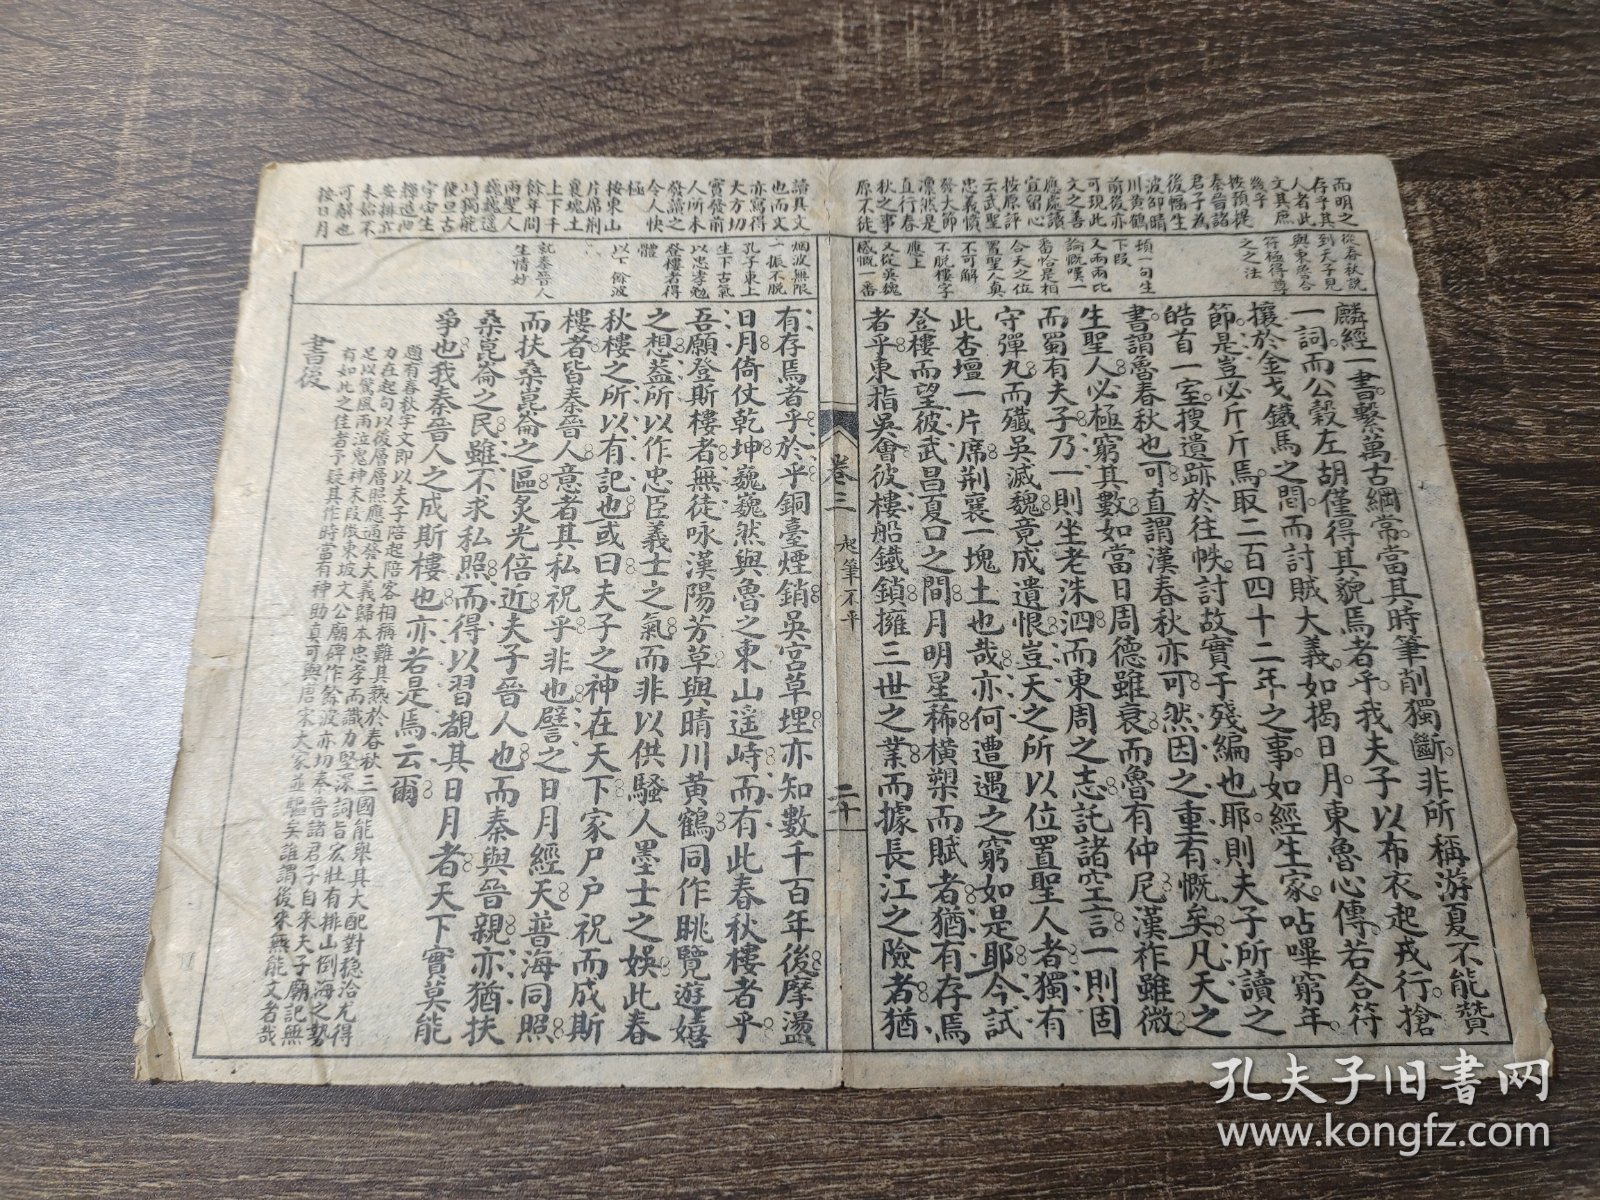 麟經一書繫萬古綱常當其時筆削獨斷非所稱游夏不能贊
一詞而公穀左胡僅得其貌焉者乎我夫子以布衣起戎行搶
攘於金戈鐵馬之間而討賊大義如揭日月東魯心傳若合符
節是豈必斤斤焉取二百四十二年之事如經生家呫嗶窮年
皓首一室搜遺跡於往帙討故實于殘編也耶則夫子所讀之
書謂魯春秋也可直謂漢春秋亦可然因之重有慨矣凡天之
生聖人必極窮其數如當日周德雖衰而魯有仲尼漢祚雖微
而蜀有夫子乃一則坐老洙泗而東周之志託諸空言一則固
守彈丸而殲吳滅魏竟成遺恨豈天之所以位置聖人者獨有
此杏壇一片席荆襄一塊土也哉亦何遭遇之窮如是耶今試
登樓而望彼武昌夏口之間月明星稀橫槊而賦者猶有存焉
者乎東指吳會彼樓船鐵鎖擁三世之業而據長江之險者猶
卷三
起筆不平
二十
有存焉者乎於乎銅臺煙銷吳宮草埋亦知數千百年後摩盪
日月倚仗乾坤巍巍然與魯之東山遥峙而有此春秋樓者乎
吾願登斯樓者無徒咏漢陽芳草與晴川黄鶴同作眺覽遊嬉
之想葢所以作忠臣義士之氣而非以供騷人墨士之娛此春
秋樓之所以有記也或曰夫子之神在天下家尸户祝而成斯
樓者皆秦晉人意者其私祝乎非也譬之日月經天普海同照
而扶桑崑崙之區炙光倍近夫子晉人也而秦與晉親亦猶扶
桑崑崙之民雖不求私照而得以習覩其日月者天下實莫能
爭也我秦晉人之成斯樓也亦若是焉云爾
題有春秋字文即以夫子陪起陪客相稱難其熱於春秋三國能舉其大配對穩洽尤得
力在起句以後層層照應通發大義歸本忠孝而識力堅深詞旨宏壯有排山倒海之勢
足以驚風雨泣鬼神末段倣東坡文公廟碑作餘波亦切秦晉諸君子自來夫子廟記無
有如此之佳者予疑其作時當有神助真可與唐宋大家並驅矣誰謂後來無能文者哉
書後
而明之
存乎其
人者此
文其庶
幾乎
按頂提
秦晉諸
君子為
後幅生
波即晴
川黄鶴
前後亦
可現此
文之善
應處讀
宜留心
按原評
云武聖
忠義憤
發大節
凜然是
直行春
秋之事
原不徒
讀具文
也而文
亦寫得
大方切
實發前
人所未
發讀之
令人快
極
按東山
片席荆
襄塊土
上下千
餘年間
兩聖人
巍巍遥
峙獨航
便曰古
今密生
安排亦
未始不
可辭也
按日月
從春秋說
到夫子見
與東魯合
符極得尊
之之法
頓一句生
下段
又兩兩比
論慨嘆一
番恰是相
合天之位
置聖人真
不可解
不脱樓字
應上
又從吳魏
感慨一番
烟波無限
一振不脱
孔子東上
生下古氣
以忠孝勉
登樓者得
體
以下餘波
就秦晉人
生情妙
孔夫子旧書网
www.kongfz.com